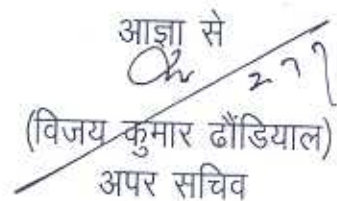 आज्ञा से
(विजय कुमार ढौंडियाल)
अपर सचिव